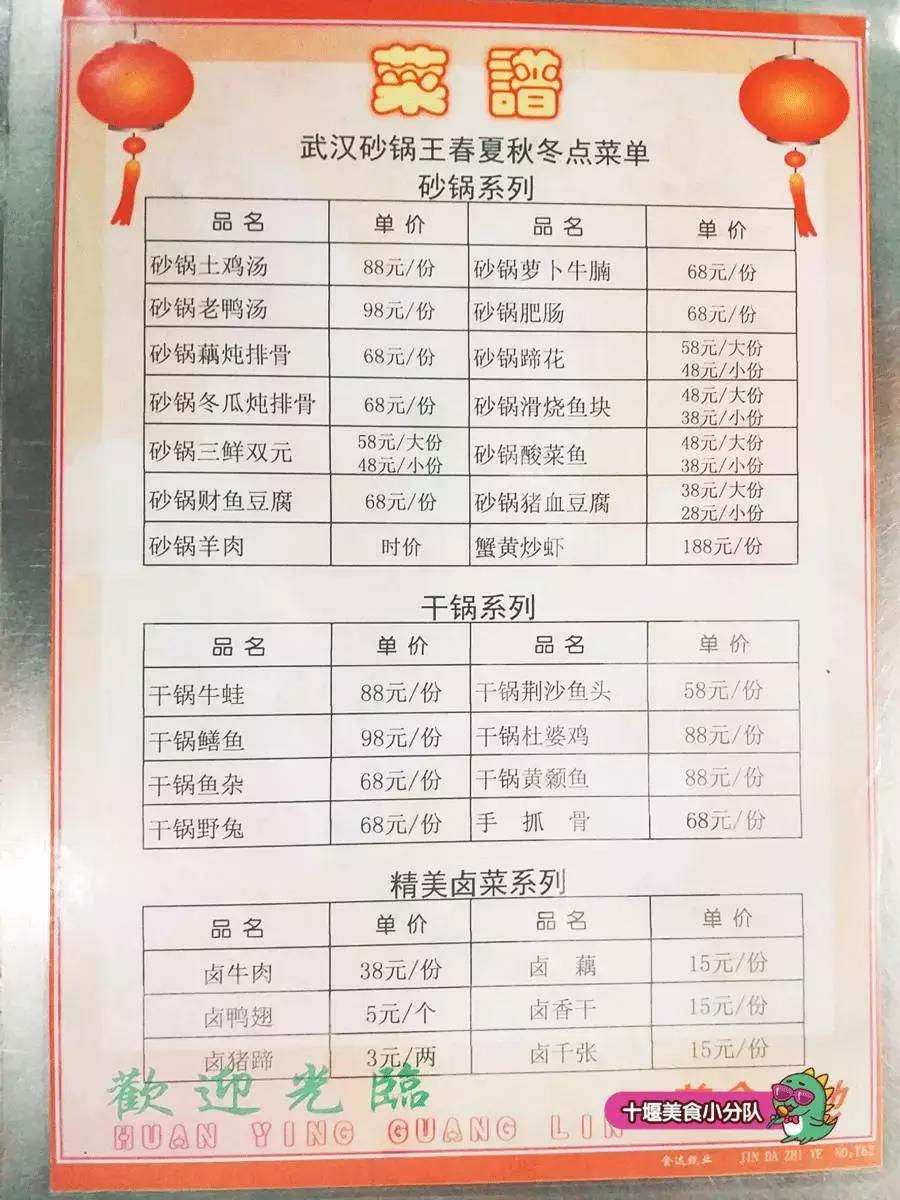 菜 譜
武汉砂锅王春夏秋冬点菜单
砂锅系列
品名 单价 品名 单价
砂锅土鸡汤 88元/份 砂锅萝卜牛腩 68元/份
砂锅老鸭汤 98元/份 砂锅肥肠 68元/份
砂锅藕炖排骨 68元/份 砂锅蹄花 58元/大份 48元/小份
砂锅冬瓜炖排骨 68元/份 砂锅滑烧鱼块 48元/大份 38元/小份
砂锅三鲜双元 58元/大份 48元/小份 砂锅酸菜鱼 48元/大份 38元/小份
砂锅财鱼豆腐 68元/份 砂锅猪血豆腐 38元/大份 28元/小份
砂锅羊肉 时价 蟹黄炒虾 188元/份
干锅系列
品名 单价 品名 单价
干锅牛蛙 88元/份 干锅荆沙鱼头 58元/份
干锅鳝鱼 98元/份 干锅杜婆鸡 88元/份
干锅鱼杂 68元/份 干锅黄颡鱼 88元/份
干锅野兔 68元/份 手抓骨 68元/份
精美卤菜系列
品名 单价 品名 单价
卤牛肉 38元/份 卤藕 15元/份
卤鸭翅 5元/个 卤香干 15元/份
卤猪蹄 3元/两 卤千张 15元/份
歡迎光臨
HUAN YING GUANG LIN
十堰美食小分队
金达纸业 JIN DA ZHI YE NO:162